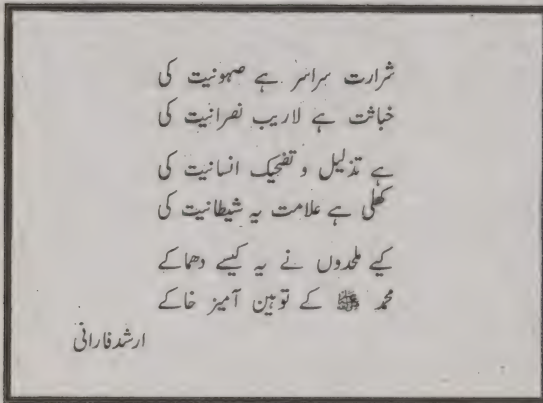 شرارت سراسر ہے صہونیت کی
خباثت ہے لاریب نصرانیت کی
ہے تذلیل و تضحیک انسانیت کی
کھلی ہے علامت یہ شیطانیت کی
کیے ملحدوں نے یہ کیسے دھماکے
محمد ﷺ کے توہین آمیز خاکے
ارشد فارانی